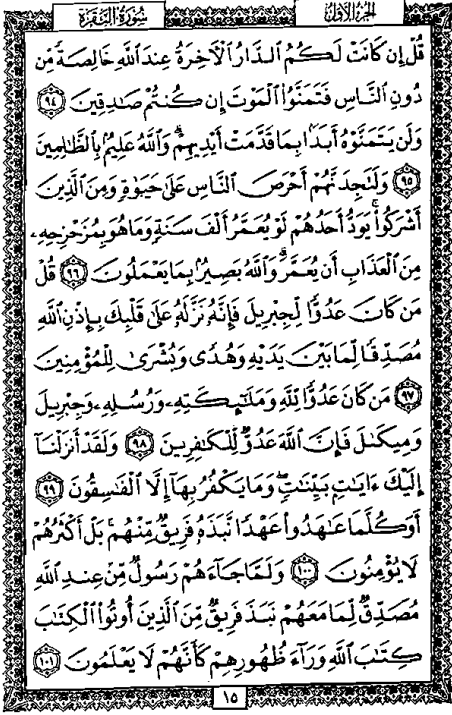 سُورَةُ البَقَرَةِ
الجُزءُ الأَوَّلُ
قُلْ إِن كَانَتْ لَكُمُ ٱلدَّارُ ٱلْأَخِرَةُ عِندَ ٱللَّهِ خَالِصَةً مِّن
دُونِ ٱلنَّاسِ فَتَمَنَّوُا۟ ٱلْمَوْتَ إِن كُنتُمْ صَٰدِقِينَ ٩٤
وَلَن يَتَمَنَّوْهُ أَبَدًۢا بِمَا قَدَّمَتْ أَيْدِيهِمْ ۗ وَٱللَّهُ عَلِيمٌۢ بِٱلظَّٰلِمِينَ
٩٥ وَلَتَجِدَنَّهُمْ أَحْرَصَ ٱلنَّاسِ عَلَىٰ حَيَوٰةٍ وَمِنَ ٱلَّذِينَ
أَشْرَكُوا۟ ۚ يَوَدُّ أَحَدُهُمْ لَوْ يُعَمَّرُ أَلْفَ سَنَةٍ وَمَا هُوَ بِمُزَحْزِحِهِۦ
مِنَ ٱلْعَذَابِ أَن يُعَمَّرَ ۗ وَٱللَّهُ بَصِيرٌۢ بِمَا يَعْمَلُونَ ٩٦ قُلْ
مَن كَانَ عَدُوًّا لِّجِبْرِيلَ فَإِنَّهُۥ نَزَّلَهُۥ عَلَىٰ قَلْبِكَ بِإِذْنِ ٱللَّهِ
مُصَدِّقًا لِّمَا بَيْنَ يَدَيْهِ وَهُدًى وَبُشْرَىٰ لِلْمُؤْمِنِينَ
٩٧ مَن كَانَ عَدُوًّا لِّلَّهِ وَمَلَٰٓئِكَتِهِۦ وَرُسُلِهِۦ وَجِبْرِيلَ
وَمِيكَىٰلَ فَإِنَّ ٱللَّهَ عَدُوٌّ لِّلْكَٰفِرِينَ ٩٨ وَلَقَدْ أَنزَلْنَآ
إِلَيْكَ ءَايَٰتٍۭ بَيِّنَٰتٍ ۖ وَمَا يَكْفُرُ بِهَآ إِلَّا ٱلْفَٰسِقُونَ ٩٩
أَوَكُلَّمَا عَٰهَدُوا۟ عَهْدًا نَّبَذَهُۥ فَرِيقٌ مِّنْهُم ۚ بَلْ أَكْثَرُهُمْ
لَا يُؤْمِنُونَ ١٠٠ وَلَمَّا جَآءَهُمْ رَسُولٌ مِّنْ عِندِ ٱللَّهِ
مُصَدِّقٌ لِّمَا مَعَهُمْ نَبَذَ فَرِيقٌ مِّنَ ٱلَّذِينَ أُوتُوا۟ ٱلْكِتَٰبَ
كِتَٰبَ ٱللَّهِ وَرَآءَ ظُهُورِهِمْ كَأَنَّهُمْ لَا يَعْلَمُونَ ١٠١
١٥